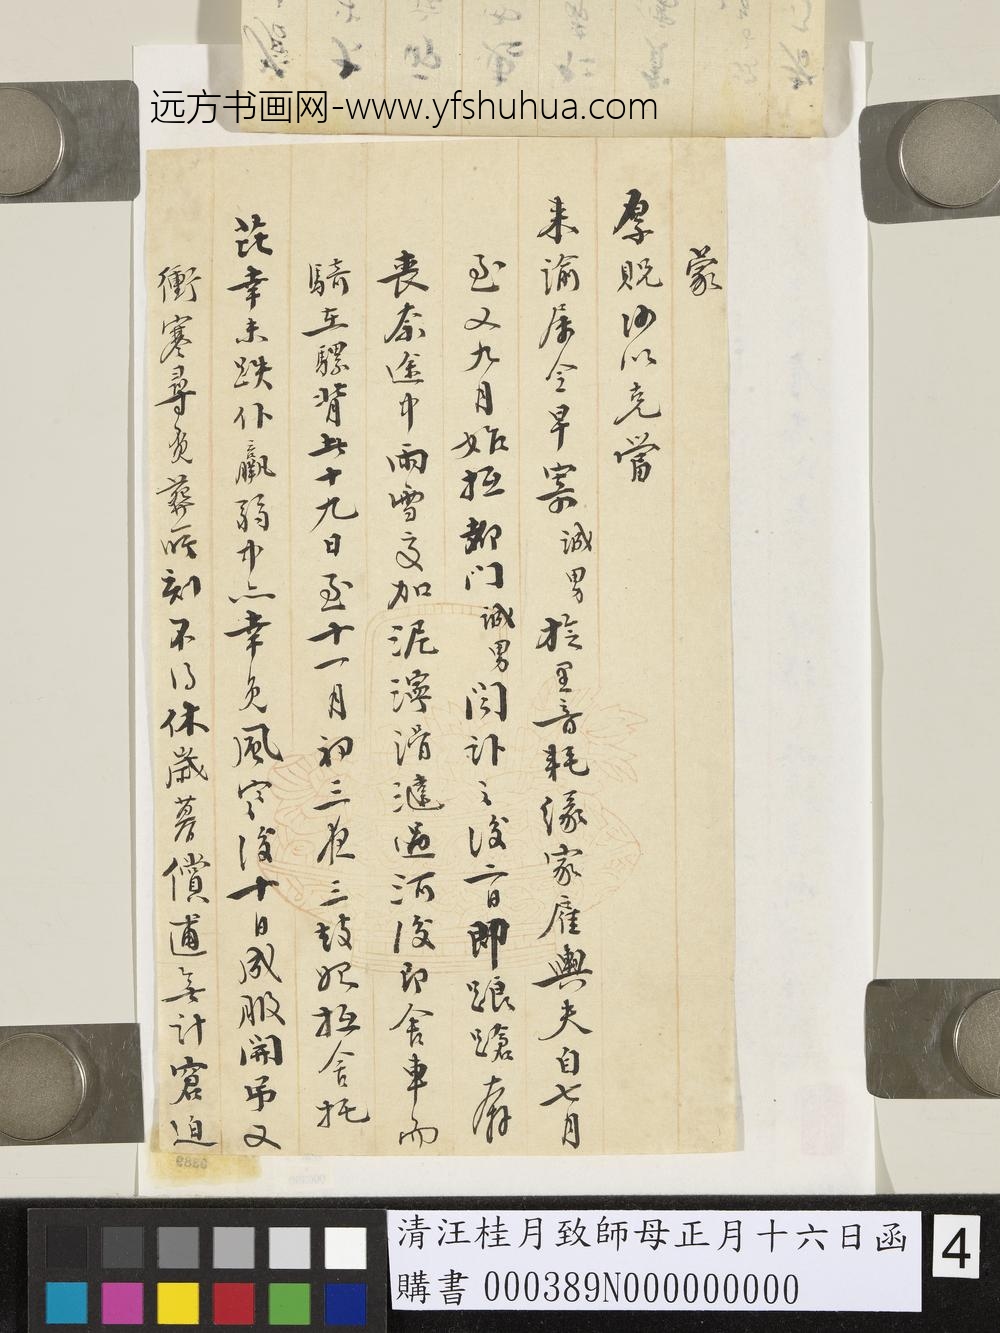 远方书画网-www.yfshuhua.com
蒙
厚貺何以克當
来諭屬令早寄誠男於里音耗緣家雇輿夫自七月
至又九月始抵都門誠男聞訃之後二日即踉蹌奔
喪奈途中雨雪交加泥濘滑澾過河後即舍車而
騎在騾背共十九日至十一月初三夜三鼓始抵舍托
芘幸未跌仆羸弱中亦幸免風寒後十日成服開弔又
衝寒尋負葬所刻不得休歲暮償逋無計窘迫
清汪桂月致師母正月十六日函
購書 000389N000000000
4